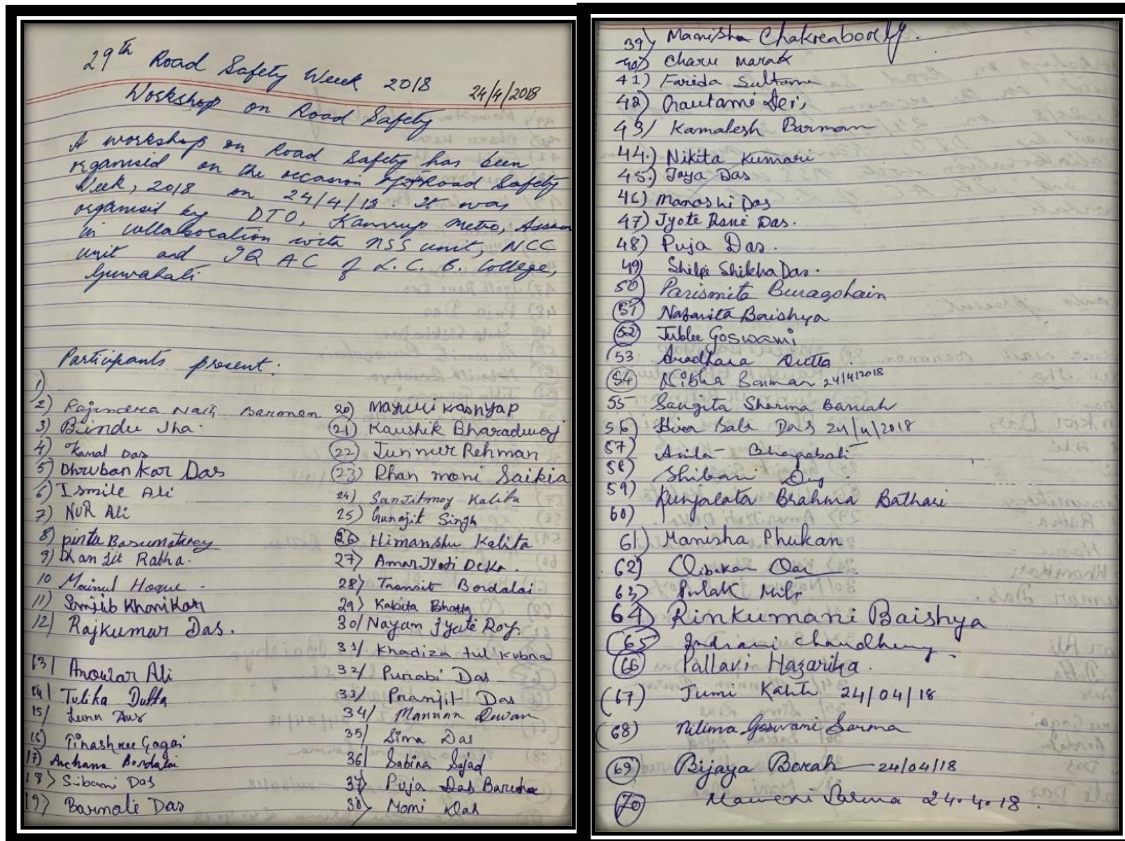 29th Road Safety Week 2018
24/4/2018
Workshop on Road Safety
A workshop on Road Safety has been
organised on the occasion of Road Safety
Week, 2018 on 24/4/18 It was
organised by DTO, Kamrup Metro, Assam
in collaboration with NSS unit, NCC
unit and IQAC of L.C.B. College,
Guwahati
Participants present.
1)
2) Rajendra Nath Barman
3) Bindu Jha.
4) Kamal Das
5) Dhruban Kar Das
6) Ismile Ali
7) NUR Ali
8) pintu Basumatary
9) Dhan Jit Rabha.
10 Mainul Hoque
11) Sanjib Khanikar
12) Rajkumar Das.
13) Anowar Ali
14) Tulika Dutta
15)
16) Tinashree Gogoi
17) Archana Bordoloi
18) Sibani Das
19) Barnali Das
20) Mayuri Kashyap
21) Kaushik Bharadwaj
22) Junnur Rehman
23) Dhan moni Saikia
24) Sanjitmoy Kalita
25) Gunajit Singh
26) Himanshu Kalita
27) AmarJyoti Deka.
28) Transit Bordoloi
29) Kabita Bhatta
30/ Nayam Jyote Roy.
31/ Khadiza tul Kubna
32/ Purabi Das
33/ Pranjit Das
34/ Mannan Dewan
35) Sima Das
36) Sabina Sajad
37) Puja Das Barua
38) Momi Das
39) Manisha Chakreaborty.
40) Charu Marak
41) Farida Sultana
42) Gautami Dei,
43/ Kamalesh Barman
44.) Nikita Kumari
45.) Jaya Das
46) Manashi Das
47) Jyote Rani Das.
48) Puja Das.
49) Shilpi Shikha Das.
50) Parismita Buragohain
51) Nabanita Baishya
52) Jublee Goswami
53 Aradhana Dutta
54) Nibha Barman 24/4/2018
55- Sangita Sharma Baruah
56) Hira Bala Das 24/4/2018
57) Anita Bhagabati
58) Shiban Dey
59) Kunjalata Brahma Bathari
60)
61) Manisha Phukan
62) Dibakar
63) Pulak Mili
64) Rinkumani Baishya
65 Indrani Chaudhury
66) Pallavi Hazarika.
(67) Jumi Kalita 24/04/18
(68) Nilima Goswami Sarma
69) Bijaya Borah 24/04/18
70) Sarma 24.4.18.